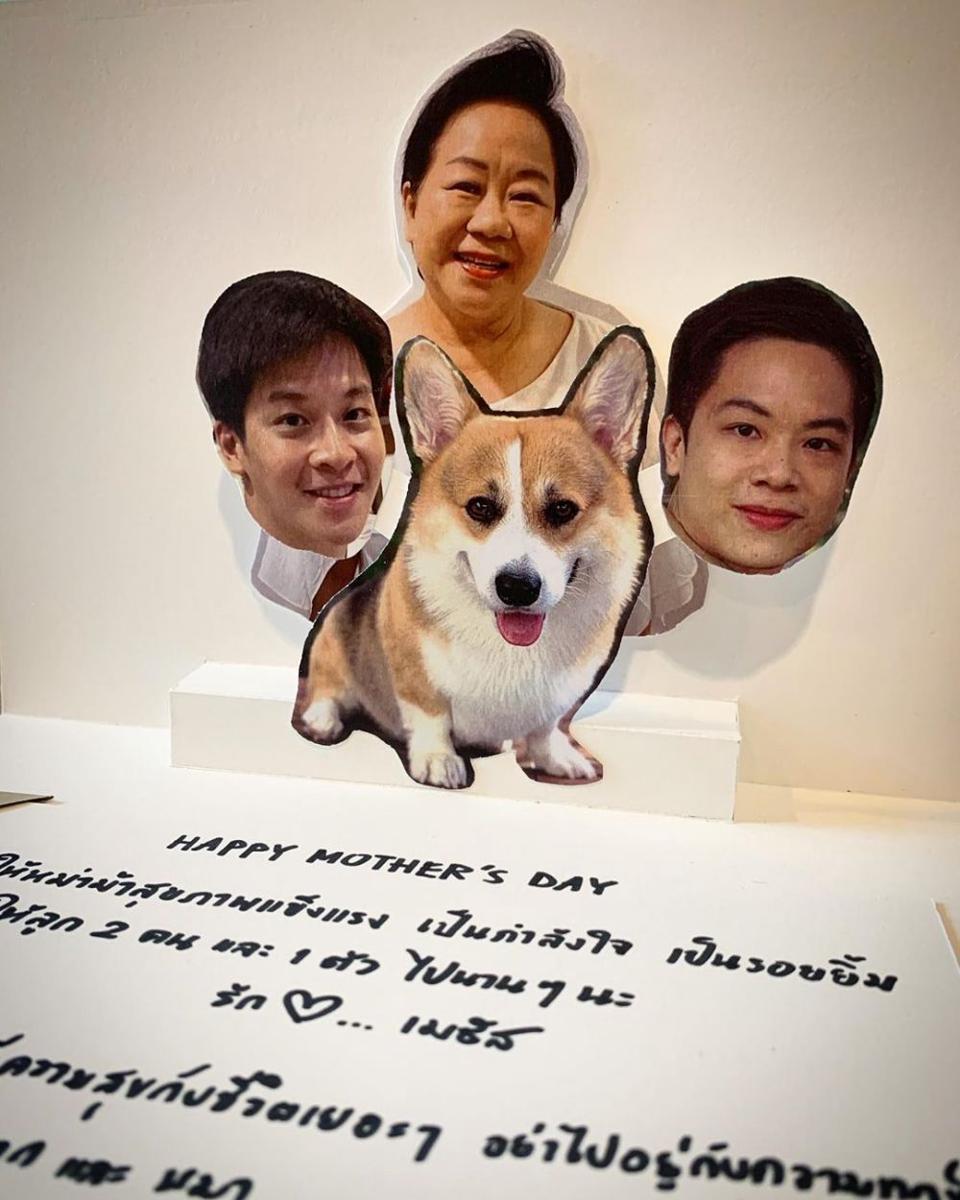 HAPPY MOTHER'S DAY
ให้หม่าม้าสุขภาพแข็งแรง เป็นกำลังใจ เป็นรอยยิ้ม
ให้ลูก 2 คน และ 1 ตัว ไปนานๆ นะ
รัก ♡... เมธัส
ความสุขกับชีวิตเยอะๆ อย่าไปอยู่กับความทุก
และ หมา